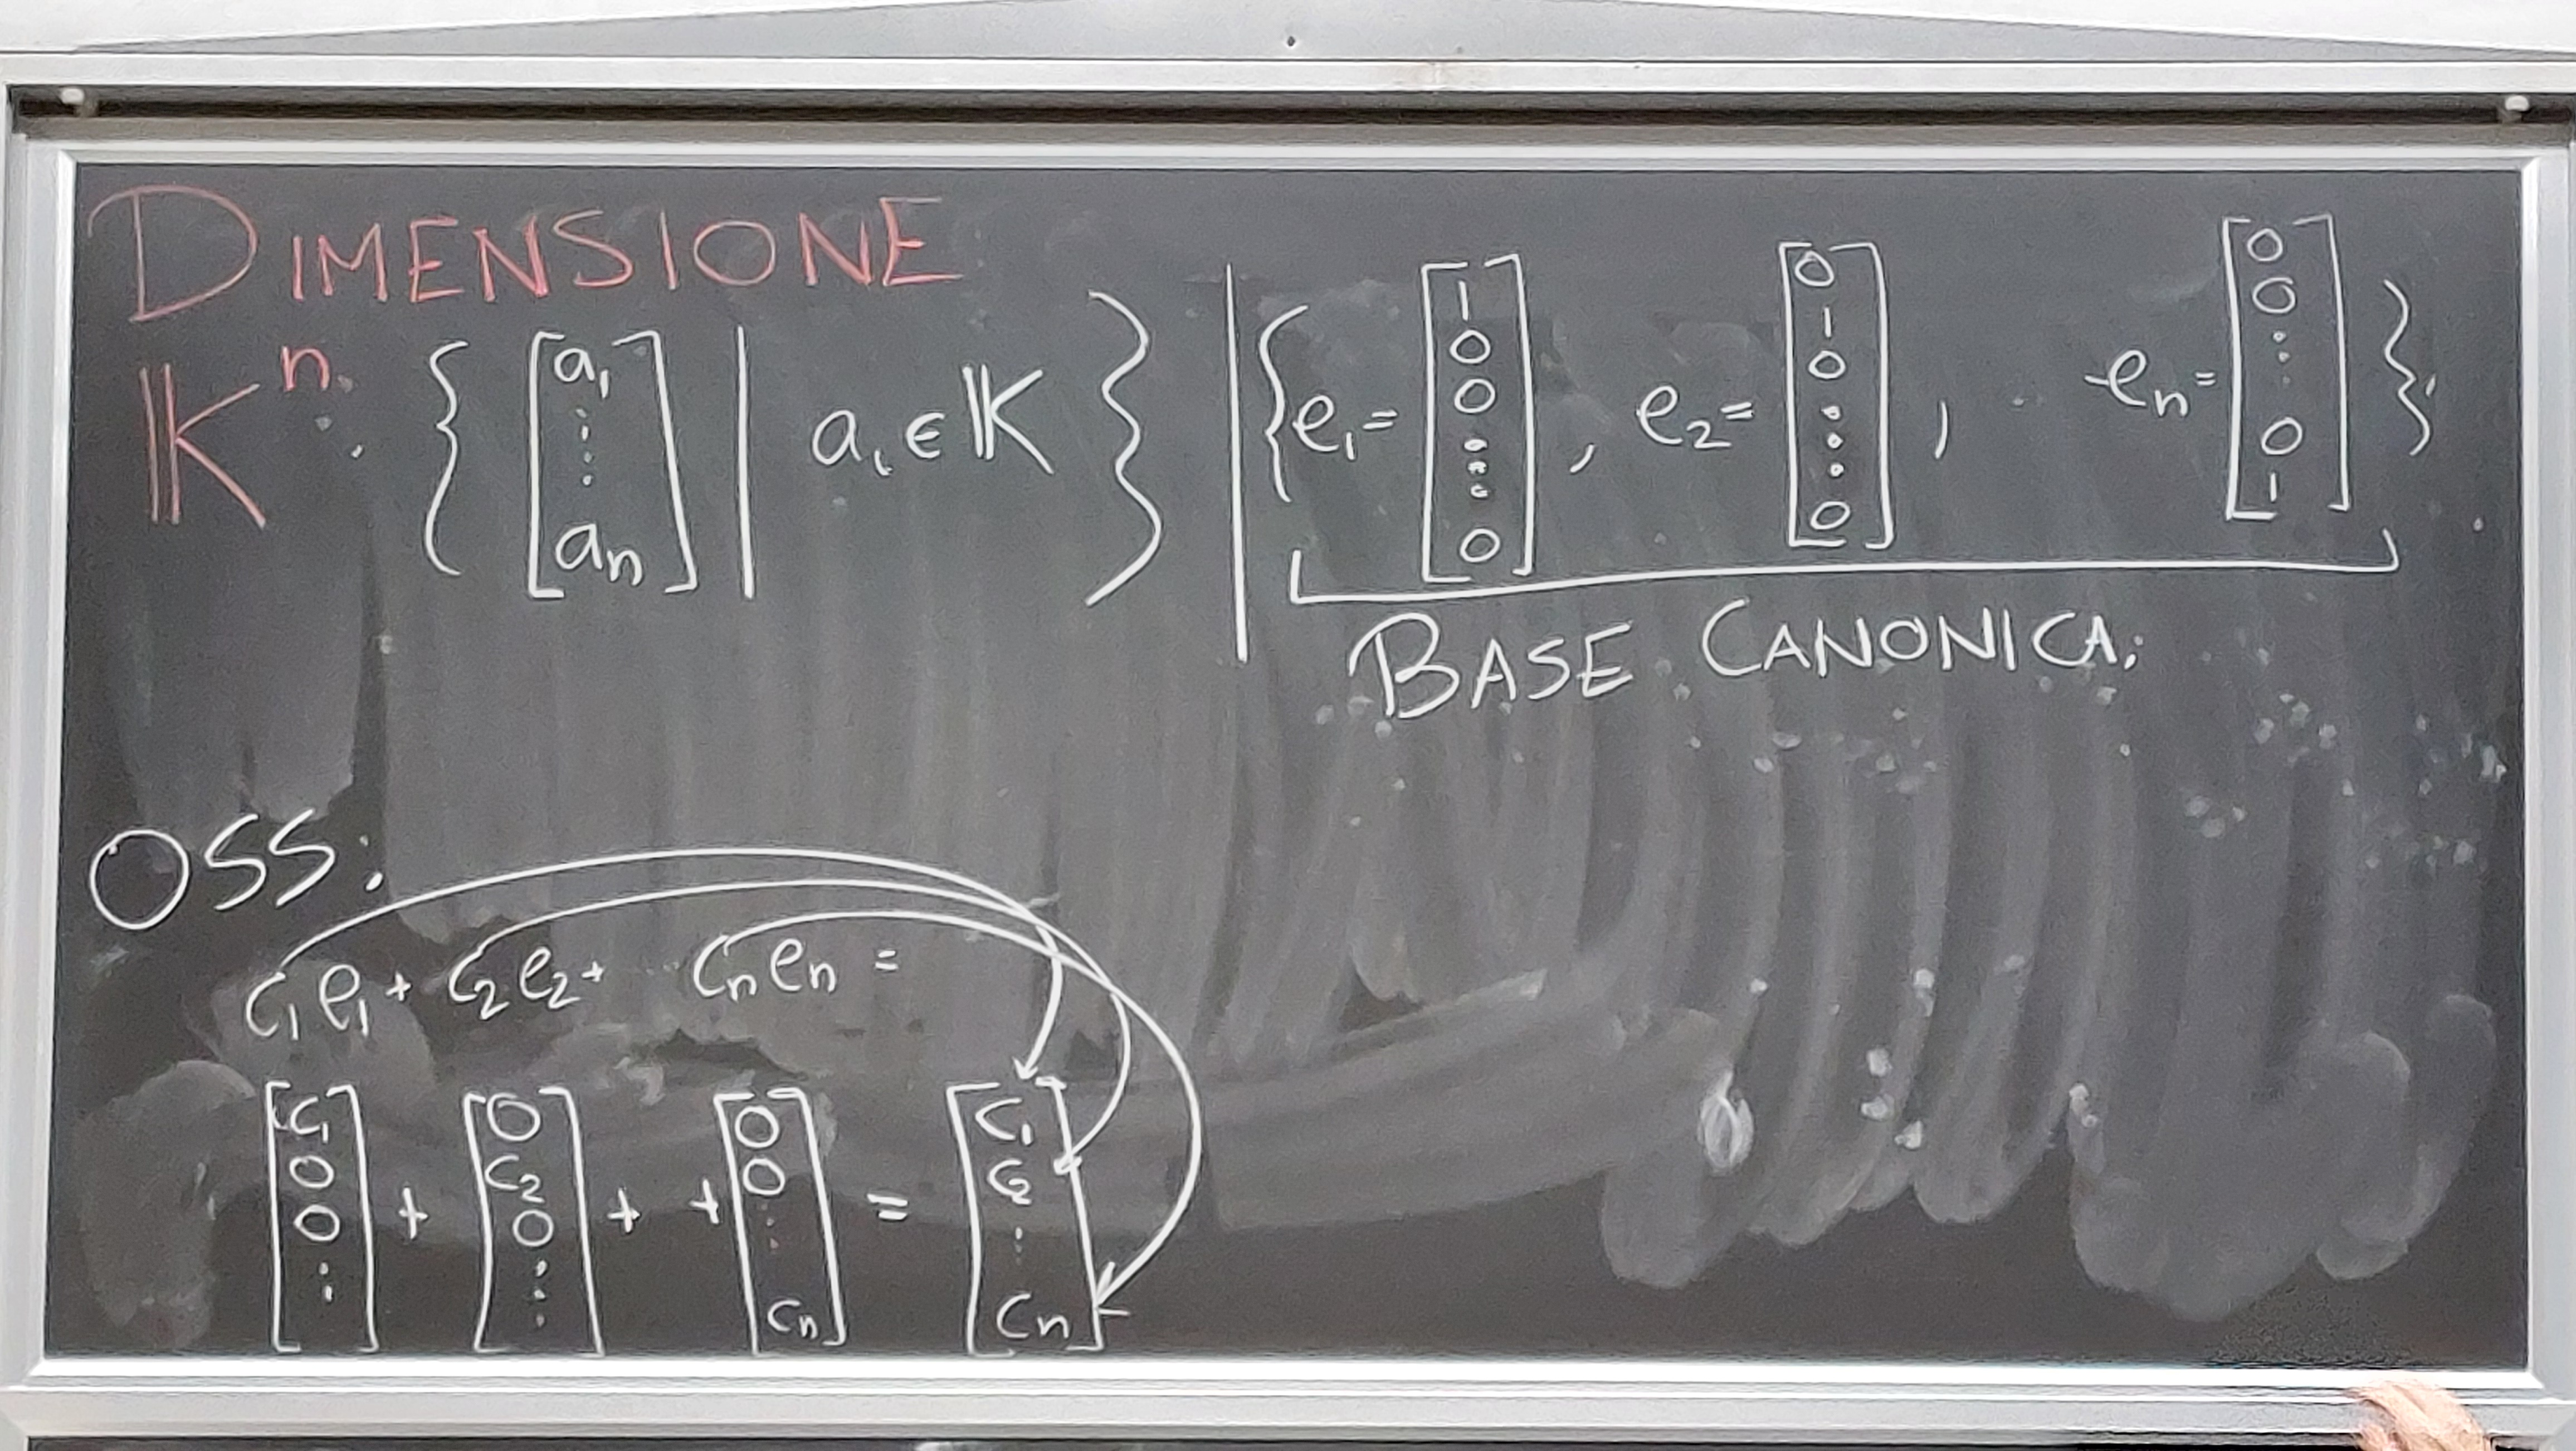 DIMENSIONE
𝕂ⁿ: { [a₁ ⋮ aₙ] | aᵢ ∈ 𝕂 } | { e₁= [1 0 0 ⋮ 0] , e₂= [0 1 0 ⋮ 0] , eₙ= [0 0 ⋮ 0 1] };
BASE CANONICA:
OSS:
c₁e₁ + c₂e₂ + cₙeₙ =
[c₁ 0 0 ⋮] + [0 c₂ 0 ⋮] + + [0 0 ⋮ cₙ] = [c₁ c₂ ⋮ cₙ]